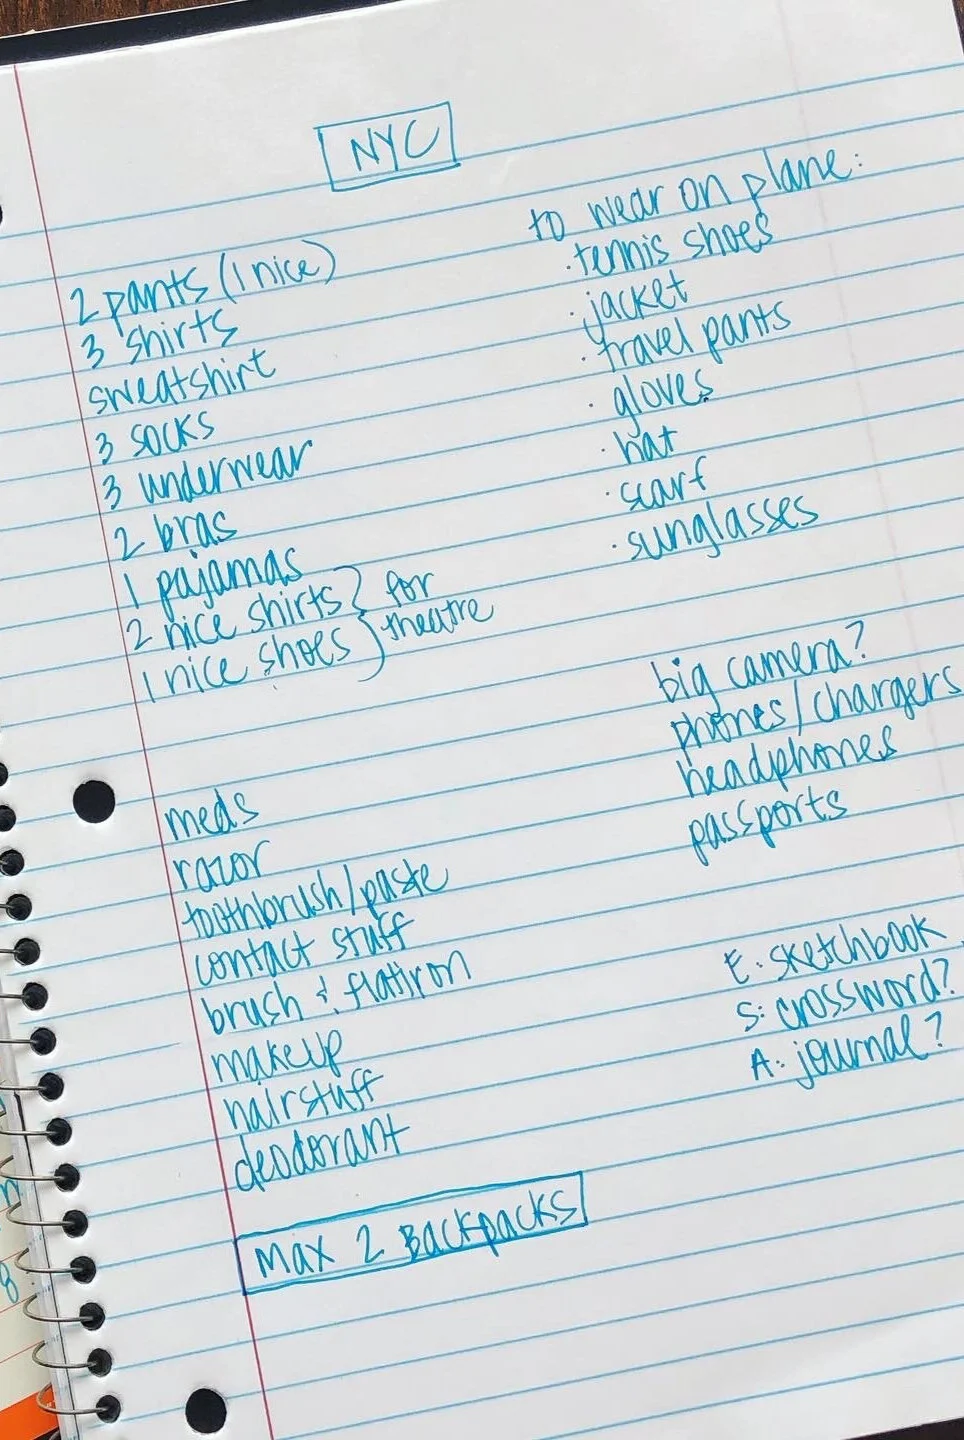 NYC
2 pants (1 nice)
3 shirts
sweatshirt
3 socks
3 underwear
2 bras
1 pajamas
2 nice shirts } for
1 nice shoes } theatre
to wear on plane:
· tennis shoes
· jacket
· travel pants
· gloves
· hat
· scarf
· sunglasses
big camera?
phones/chargers
headphones
passports
meds
razor
toothbrush/paste
contact stuff
brush & flatiron
makeup
hairstuff
deodorant
E: sketchbook
S: crossword?
A: journal?
MAX 2 BACKPACKS
8